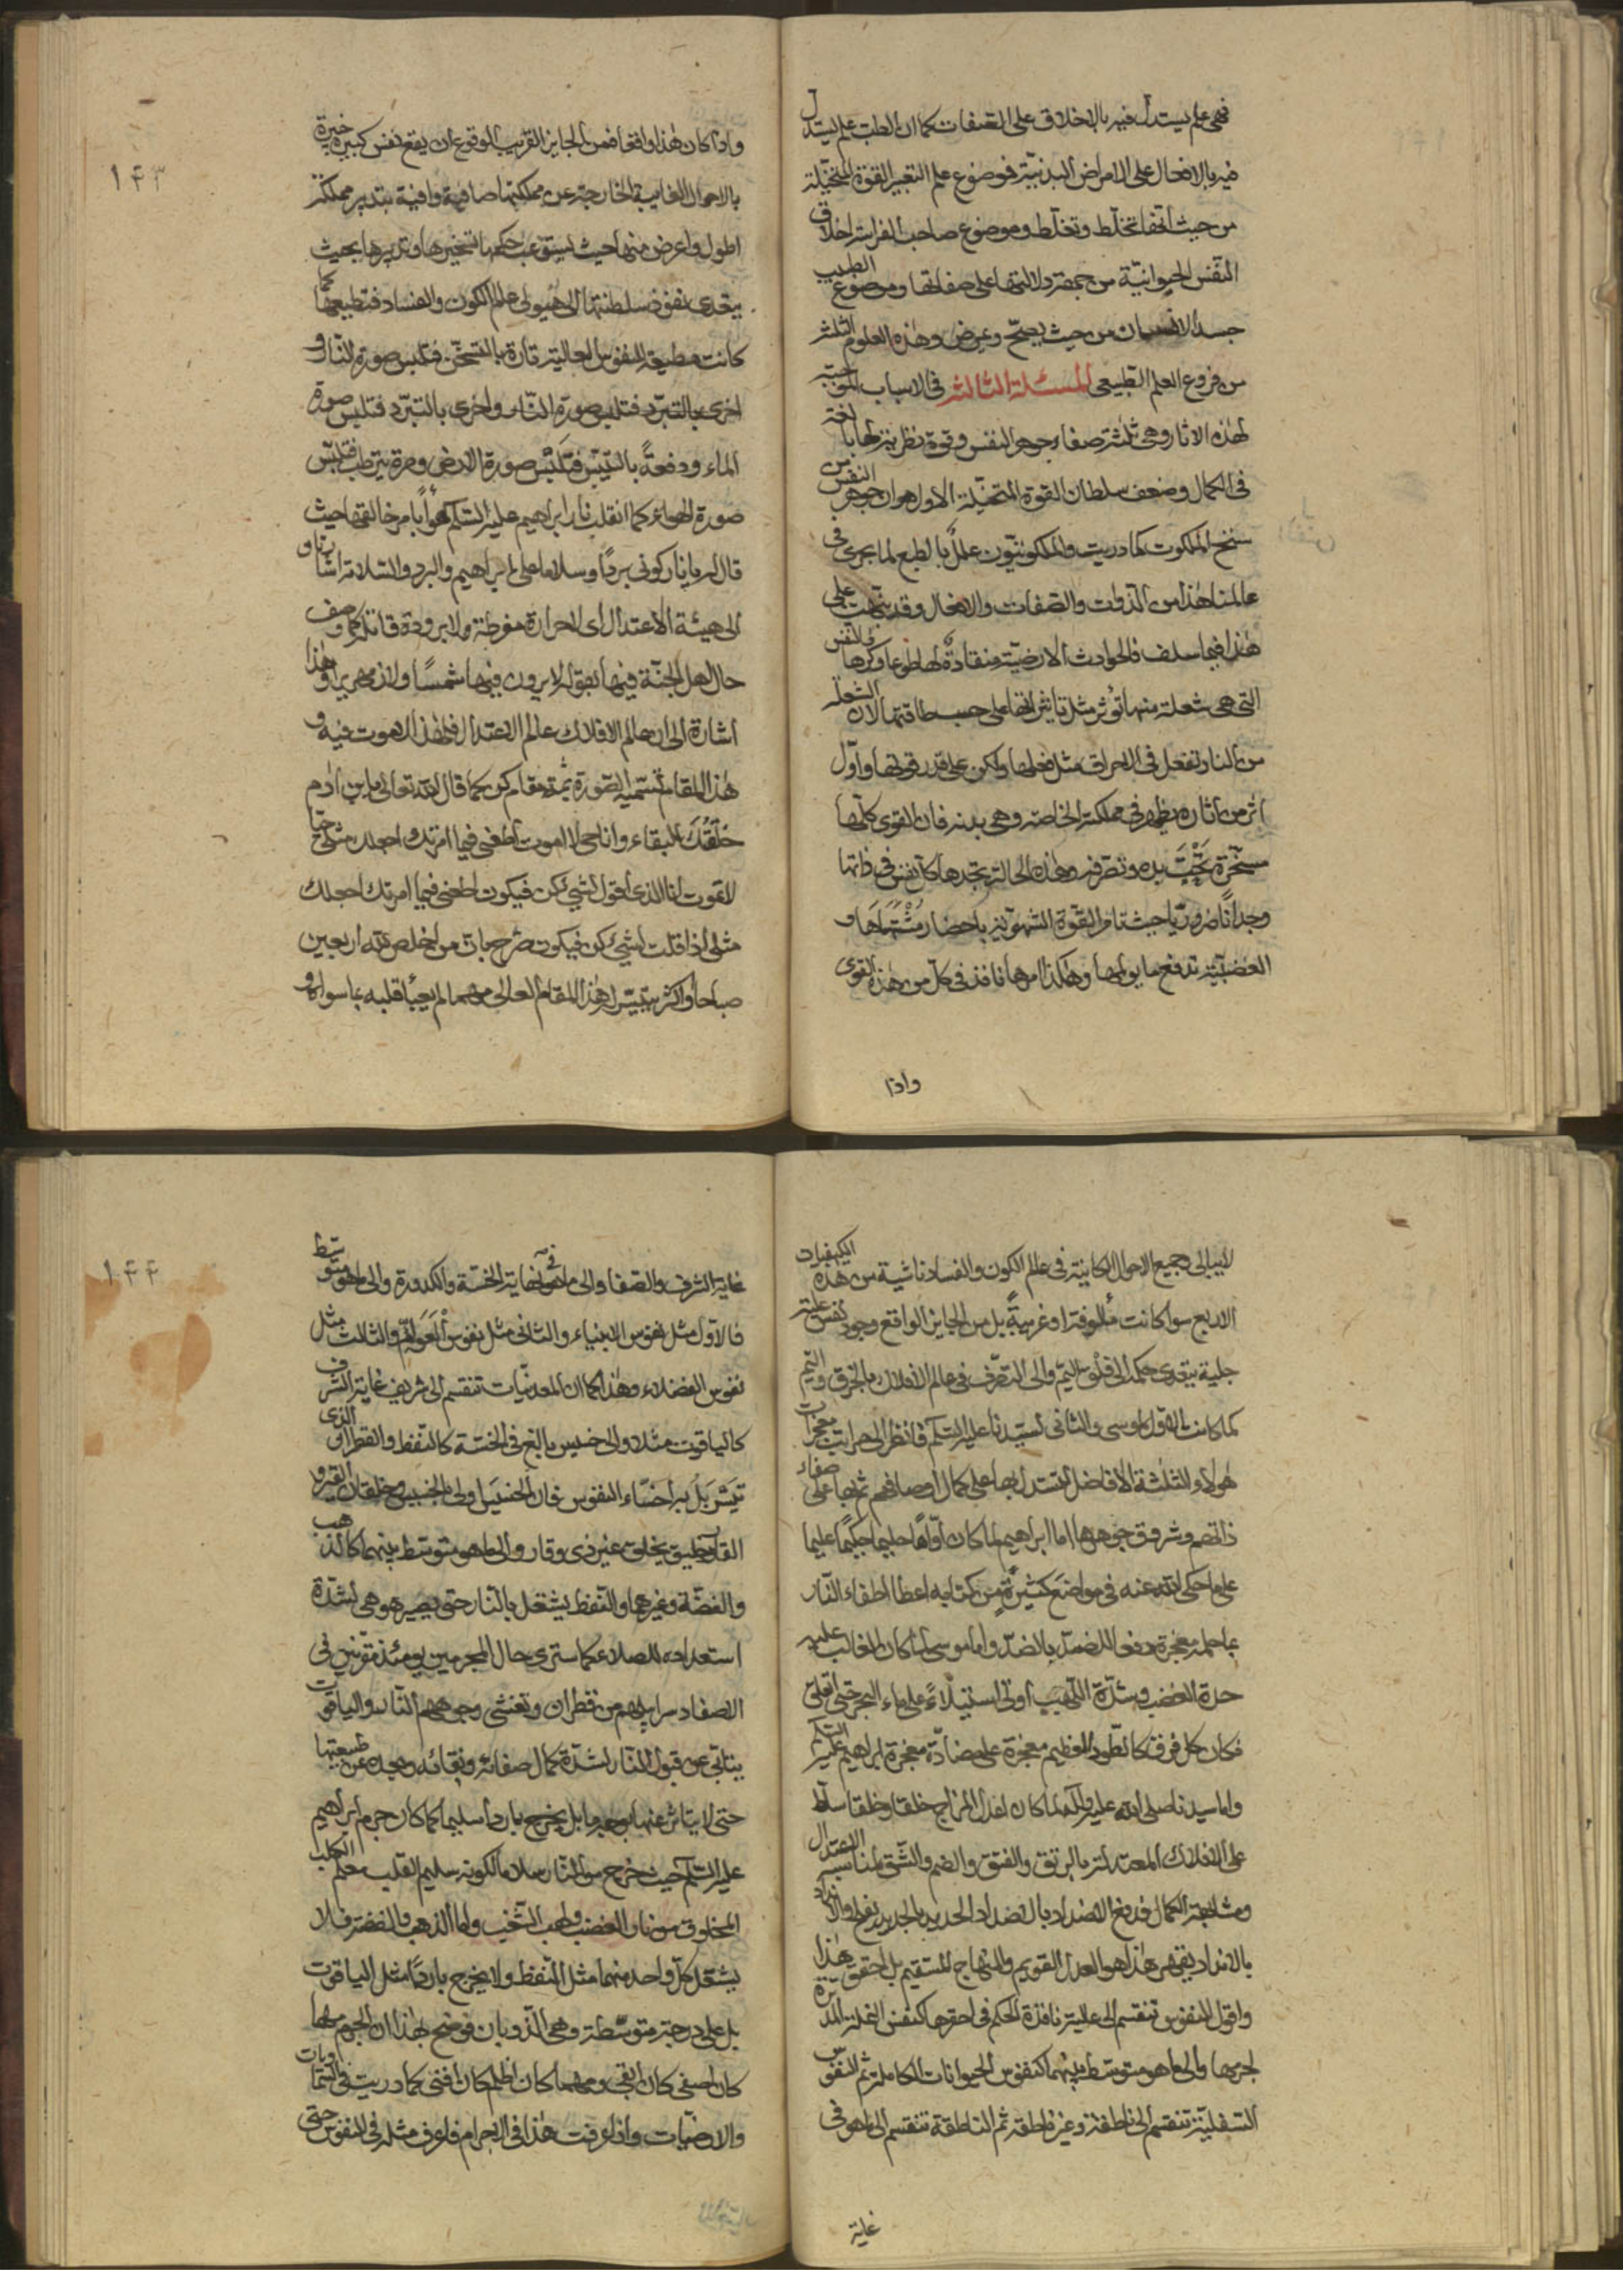 فهى علم يستدل فيه بالاخلاق على الصفات كما ان الطب علم يستدل
فيه بالافعال على الامراض البدنية فموضوع علم التعبير القوة المتخيلة
من حيث انها تخلط وتغلط وموضوع صاحب الفراسة اخلاق
النفس الحيوانية من جهة دلالتها على صفاتها وموضوع الطبيب
جسد الانسان من حيث يصح ويمرض وهذه العلوم الثلثة
من فروع العلم الطبيعى المسئلة الثالثة فى الاسباب الموجبة
لهذه الاثار وهى ثلثة صفاء جوهر النفس وقوة نظرية لها بالغة
فى الكمال وضعف سلطان القوة المتخيلة الاول هو ان جوهر النفس
سنخ الملكوت كما دريت والملكوتيون علل بالطبع لما يجرى فى
عالمنا هذا من الذوات والصفات والافعال وقد نبهت على
هذا فيما سلف فالحوادث الارضية منقادة لها طوعا وكرها والنفس
التى هى شعلة منها تؤثر مثل تاثيراتها على حسب طاقتها لان الشعلة
من النار تفعل فى الاحراق مثل فعلها ولكن على قدر قوتها واول
اثر من اثاره يظهر فى مملكته الخاصة وهى بدنه فان القوى كلها
مسخرة تحت يده وتصرفه وهذه الحالة يجدها كل نفس فى ذاتها
وجدانا ضروريا حيث تامر القوة الشهوية باحضار مشتهاها و
الغضبية تدفع ما يولمها وهكذا امرها نافذ فى كل من هذه القوى
واذا
١۴٣
واذا كان هذا واقعا فمن الجايز القريب الوقوع ان يقع نفس كبيرة خبيرة
بالاحوال الغايبة الخارجة عن مملكتها صافية وافية بتدبير مملكة
اطول واعرض منها حيث يستوعب حكمها تسخيرها وتدبيرها بحيث
يتعدى نفوذ سلطنتها الى هيولى عالم الكون والفساد فتطيعها كما
كانت مطيعة للنفوس العالية تارة بالتسخن فتلبس صورة النار و
اخرى بالتبرد فتلبس صورة النار واخرى بالتبرد فتلبس صورة
الماء ودفعة بالتيبس فتلبس صورة الارض ومرة يترطب فتلبس
صورة الهواء كما انقلب نار ابراهيم عليه السلم هواء بامر خالقها حيث
قال له يا نار كونى بردا وسلاما على ابراهيم والبرد والسلامة اشارتان
الى هيئة الاعتدال اى لا حرارة مفرطة ولا برودة قاتلة كما وصف
حال اهل الجنة فيها بقوله لا يرون فيها شمسا ولا زمهريرا وهذا
اشارة الى ان عالم الافلاك عالم الاعتدال فلهذا لا موت فيه و
هذا المقام تسميه الصورة ثمة مقام كن كما قال الله تعالى يا بن ادم
خلقتك للبقاء وانا حى لا اموت اطعنى فيما امرتك اجعلك مثلى حيا
لا تموت انا الذى اقول لشىء كن فيكون اطعنى فيما امرتك اجعلك
مثلى اذا قلت لشىء كن فيكون من اخلص لله اربعين
صباحا او اكثر يتيسر له هذا المقام العالى مهما لم يعبأ قلبه بما سواه و
لا يبالى وجميع الاحوال الكاينة فى عالم الكون والفساد ناشية من هذه الكيفيات
الاربع سواء كانت مألوفة او غريبة بل من الجايز الواقع وجود نفس علية
جلية يتعدى حكمه الى فلق اليم والى التصرف فى عالم الافلاك بالخرق والتيم
كما كانت الاول لموسى والثانى لسيدنا عليه السلم فانظر الى مراتب معجزات
هولاء الثلثة الافاضل تستدل بها على كمال اوصافهم ثم بها على صفاء
ذاتهم وشروق جوهرها اما ابراهيم لما كان اواها حليما حكيما عليما
على ما حكى الله عنه فى مواضع كثيرة من كتابه اعطا اطفاء النار
بما حله معجزة دفعا للضد بالضد واما موسى لما كان الغالب عليه
حدة الغضب وشدة اللهب اوتى استيلاء على ماء البحر حتى انفلق
فكان كل فرق كالطود العظيم معجزة على مضادة معجزة ابراهيم عليه السلم
واما سيدنا صلى الله عليه وآله لما كان اعدل المزاج خلقا وخلقا سلط
على الافلاك المعتدلة بالرتق والفتق والضم والشق لمناسبة الاعتدال
ومشابهة الكمال فدفع الاضداد بالاضداد الحديد بالحديد يفلح والانداد
بالانداد يقهر هذا هو العدل القويم والمنهاج المستقيم بل احقق هذا
واقول النفوس تنقسم الى عالية نافذة الحكم فى احقرها كنفس النملة المدبرة
لجرمها والى ما هو متوسط بينهما كنفوس الحيوانات الكاملة ثم النفوس
السفلية تنقسم الى ناطقة وغير ناطقة ثم الناطقة تنقسم الى ما هو فى
غاية
١۴۴
غاية الشرف والصفا والى ما هو فى نهاية الخسة والكدورة والى ما هو متوسط
فالاول مثل نفوس الانبياء والثانى مثل نفوس العوام والثالث مثل
نفوس الفضلاء وهذا كما ان المعدنيات تنقسم الى شريف غاية الشرف
كالياقوت مثلا والى خسيس بالغ فى الخسة كالنفط والقطران الذى
تيسربل به اخساء النفوس فان الخسيس اولى بالخسيس وخلقان القير و
القار يليق بخلق غير ذى وقار والى ما هو متوسط بينهما كالذهب
والفضة وغيرهما والنفط يشتعل بالنار حتى يصير هو هى لشدة
استعداده للصلاء كما سترى حال المجرمين يومئذ مقرنين فى
الاصفاد سرابيلهم من قطران وتغشى وجوههم النار والياقوت
يتابى عن قبول النار لشدة كمال صفائه ونقائه وبعده عن طبيعتها
حتى لا يتاثر عنها بوجه ما بل يخرج باردا سليما كما كان جرم ابراهيم
عليه السلم حيث خرج من النار سلاما لكونه سليم القلب
المخلوق من نار الغضب ولهب الشغب واما الذهب والفضة فلا
يشتعل كل واحد منهما مثل النفط ولا يخرج باردا مثل الياقوت
بل على درجة متوسطة وهى الذوبان فوضح بهذا ان الجرم مهما
كان اصفى كان ابقى ومهما كان اظلم كان افنى كما دريت فى السماويات
والارضيات واذا عرفت هذا فى الاجرام فاعرف مثله فى النفوس حتى